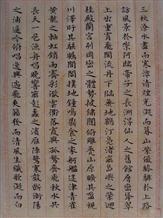 三秋潦水盡而寒潭清煙光凝而暮山紫儼驂騑於上路
訪風景於崇阿臨帝子之長洲得仙人之舊館層巒聳翠
上出重霄飛閣流丹下臨無地鶴汀鳧渚窮島嶼之縈迴
桂殿蘭宮列岡巒之體勢披繡闥俯雕甍山原曠其盈視
川澤紆其駭矚閭閻撲地鐘鳴鼎食之家舸艦迷津青雀
黃龍之軸虹銷雨霽彩徹雲衢落霞與孤鶩齊飛秋水共
長天一色漁舟唱晚響窮彭蠡之濱雁陣驚寒聲斷衡陽
之浦遙吟俯暢逸興遄飛爽籟發而清風生纖歌凝而白